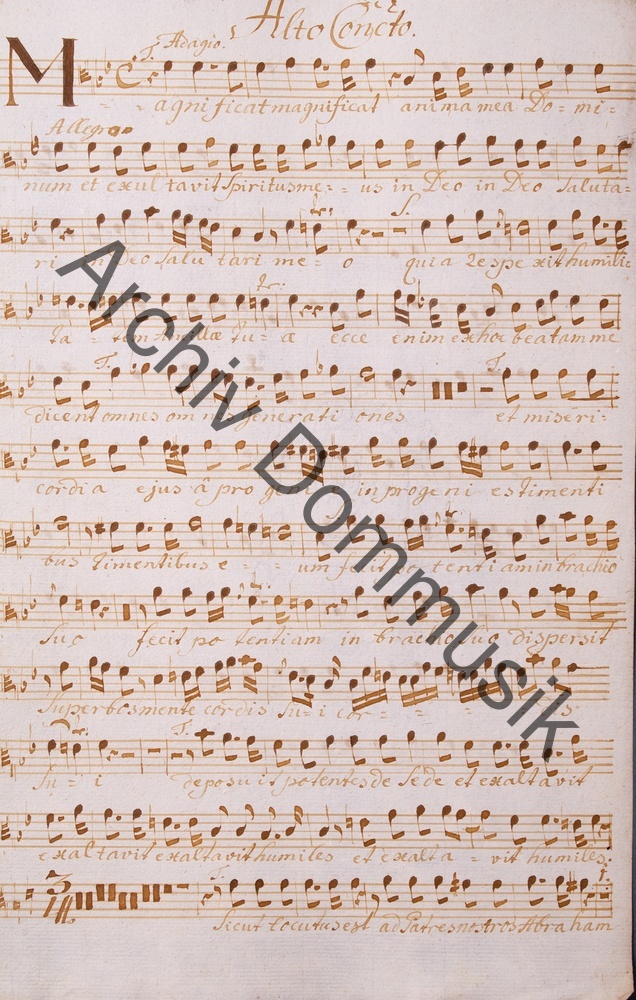 Alto Conc:to.
Adagio.
Magnificat magnificat anima mea Do = mi =
Allegro
num et exultavit Spiritus me = = us in Deo in Deo Saluta =
tr:
S.
ri in Deo Salutari me = o quia Respexit humili
tr:
ta = tem Ancillæ tu = æ ecce enim ex hoc beatam me
T. T.
dicent omnes omnes generationes et miseri =
cordia ejus â progeni in progenies timenti
bus timentibus e = = um fecit potentiam in brachio
Suo fecit potentiam in brachio Suo dispersit
Superbos mente cordis Su = i cor = = = = dis
T.
Su = i deposuit potentes de Sede et exaltavit
exaltavit exaltavit humiles et exalta = vit humiles:
3
Sicut locutus est ad Patres nostros Abraham
Archiv Dommusik